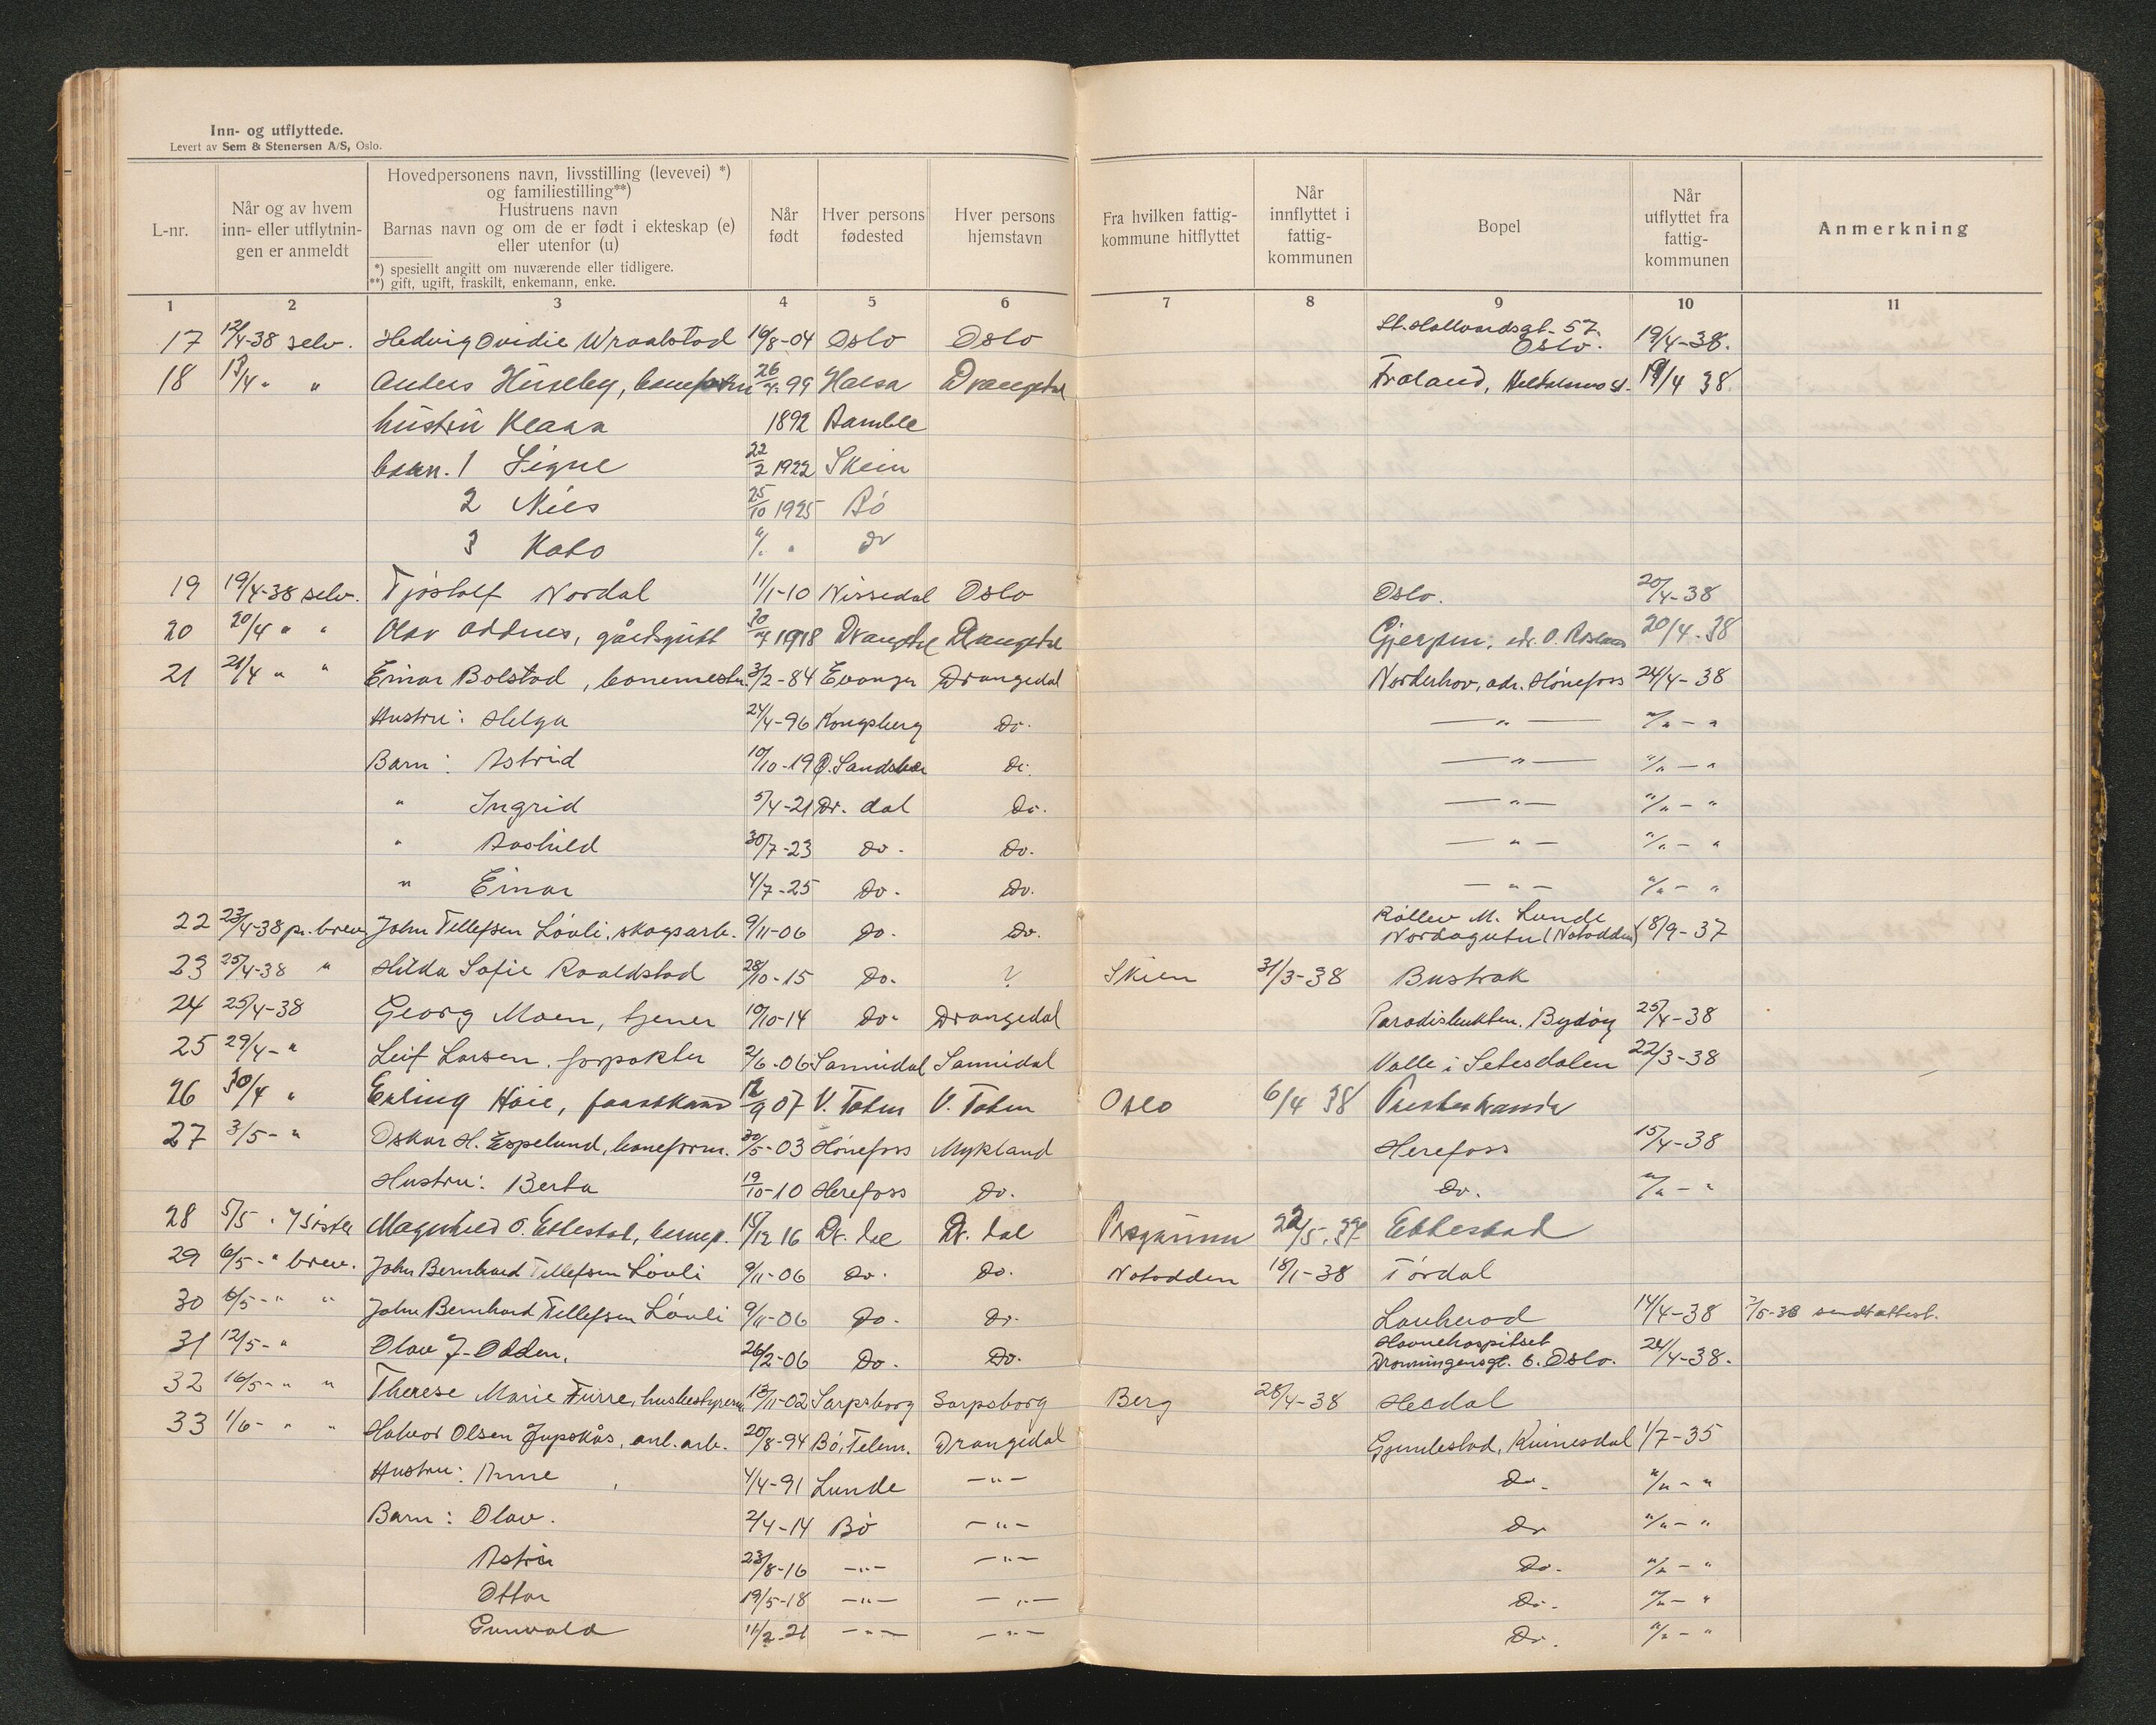 Inn- og utflyttede.
Levert av Sem & Stenersen A/S, Oslo.
L-nr.
Når og av hvem inn- eller utflytnin-gen er anmeldt
Hovedpersonens navn, livsstilling (levevei) *)
og familiestilling**)
Hustruens navn
Barnas navn og om de er født i ekteskap (e)
eller utenfor (u)
*) spesielt angitt om nuværende eller tidligere.
**) gift, ugift, fraskilt, enkemann, enke.
Når født
Hver persons fødested
Hver persons hjemstavn
Fra hvilken fattig-kommune hitflyttet
Når innflyttet i fattig-kommunen
Bopel
Når utflyttet fra fattig-kommunen
Anmerkning
1 2 3 4 5 6 7 8 9 10 11
17 12/4-38 selv. Hedvig Ovidie Wraalstad 16/8-04 Oslo Oslo St. Hallvardsgt. 57. Oslo. 19/4-38.
18 19/4 " " Anders Huseby, 26/4-99 Halsa Drangedal Froland, 19/4 38.
hustru Klara 1892 Bamble
barn. 1 Signe 22/2 1922 Skien
2 Nils 25/10 1925 Bö
3 Kato "/" " do
19 19/4-38 selv. Tjöstolf Nordal 11/1-10 Nissedal Oslo Oslo. 20/4-38
20 20/4 " " Olav Oddnes, gårdsgutt 30/4 1918 Drangedal Drangedal Gjerpen, adr. O. 20/4-38
21 21/4 " " Einar Bolstad, banemester. 3/2-84 Evanger Drangedal Norderhov, adr. Hönefoss 24/4-38
Hustru: Helga 24/4-96 Kongsberg Do. — " — "/" - "
Barn: Astrid 10/10-19 Ö. Sandsvær Do. — " — "/" - "
" Ingrid 5/4-21 Dr. dal Do. — " — "/" - "
" Aashild 30/7-23 Do. Do. — " — "/" - "
" Einar 4/7-25 Do. Do. — " — "/" - "
22 23/4-38 pr. brev John Tellefsen Lövli, skogsarb. 9/11-06 Do. Do. M. Lunde Nordagutu (Notodden) 18/9-37
23 25/4-38 " Hilda Sofie Roaldstad 28/10-15 Do. ? Skien 31/3-38 Bustrak
24 25/4-38 Georg Moen, tjener 10/10-14 Do. Drangedal Paradisbukten. Bydöy 25/4-38
25 29/4-" Leif Larsen, forpakter 2/6-06 Sannidal Sannidal Valle i Setesdalen 22/3-38
26 30/4 " Erling Höie, 12/9 07 V. Toten V. Toten Oslo 6/4 38 Prestestranda
27 3/5-" Oskar H. Espelund, baneform. 30/5-03 Hönefoss Mykland Herefoss 15/4-38
Hustru: Berta 19/10-10 Herefoss Do. Do. "/" - "
28 5/5 " Magnhild O. Ettestad, 15/12 16 Dr. dal Dr. dal Porsgrunn 22/5.37 Ettestad
29 6/5-" brev. John Bernhard Tellefsen Lövli 9/11-06 Do. Do. Notodden 18/1-38 Tördal
30 6/5-" " John Bernhard Tellefsen Lövli 9/11-06 Do. Do. 14/4-38 7/5-38 sendt attest.
31 12/5-" Olav J. Odden. 26/2-06 Do. Do. Havnehospitset Dronningensgt. 6. Oslo. 28/4-38.
32 16/5-" " Therese Marie Furre, husbestyrerinne 13/11-02 Sarpsborg Sarpsborg Berg 28/4-38 Hesdal
33 1/6- " " Halvor Olsen Jupskås, anl. arb. 20/8-94 Bö, Telem. Drangedal Gjemlestad, Kvinesdal 1/7-35
Hustru: Anne 4/4-91 Lunde — " — Do. "/" - "
Barn: Olav. 2/4-14 Bö — " — Do "/" - "
Astrid 23/8-16 — " — — " — Do. "/" - "
Ottar 19/5-18 — " — — " — Do. "/" - "
Gunvald 11/2-21 — " — — " — Do. "/" - "